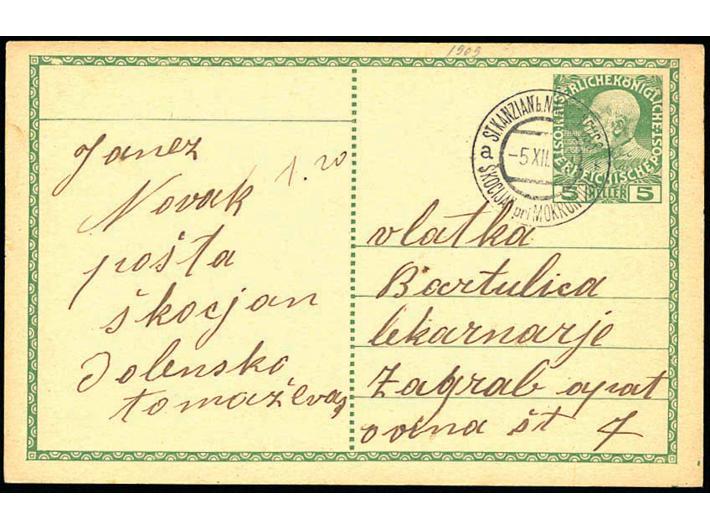 1909
Janez
1.20
Novak
pošta
škocjan
Dolensko
tomaževas
ST KANZIAN b. N
a
-5 XII.
ŠKOCIJAN pri MOKRON
KAISERLICHEKÖNIGLICHE
ÖSTERREICHISCHEPOST
5 HELLER 5
vlatka
Bartulica
lekarnarje
Zagrab apat
ovina št 7